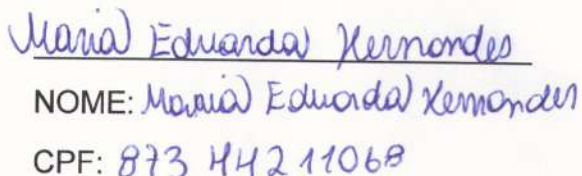 Maria Eduarda Hernandes
NOME: Maria Eduarda Hernandes
CPF: 873 442 11068